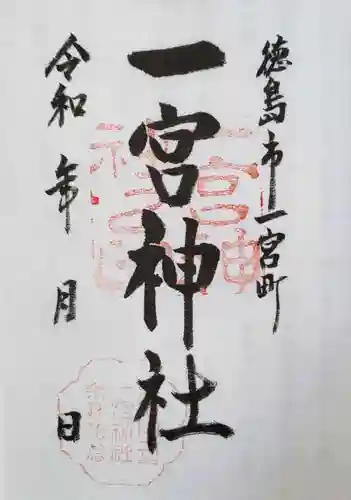 徳島市一宮町
一宮神社
令和 年 月 日